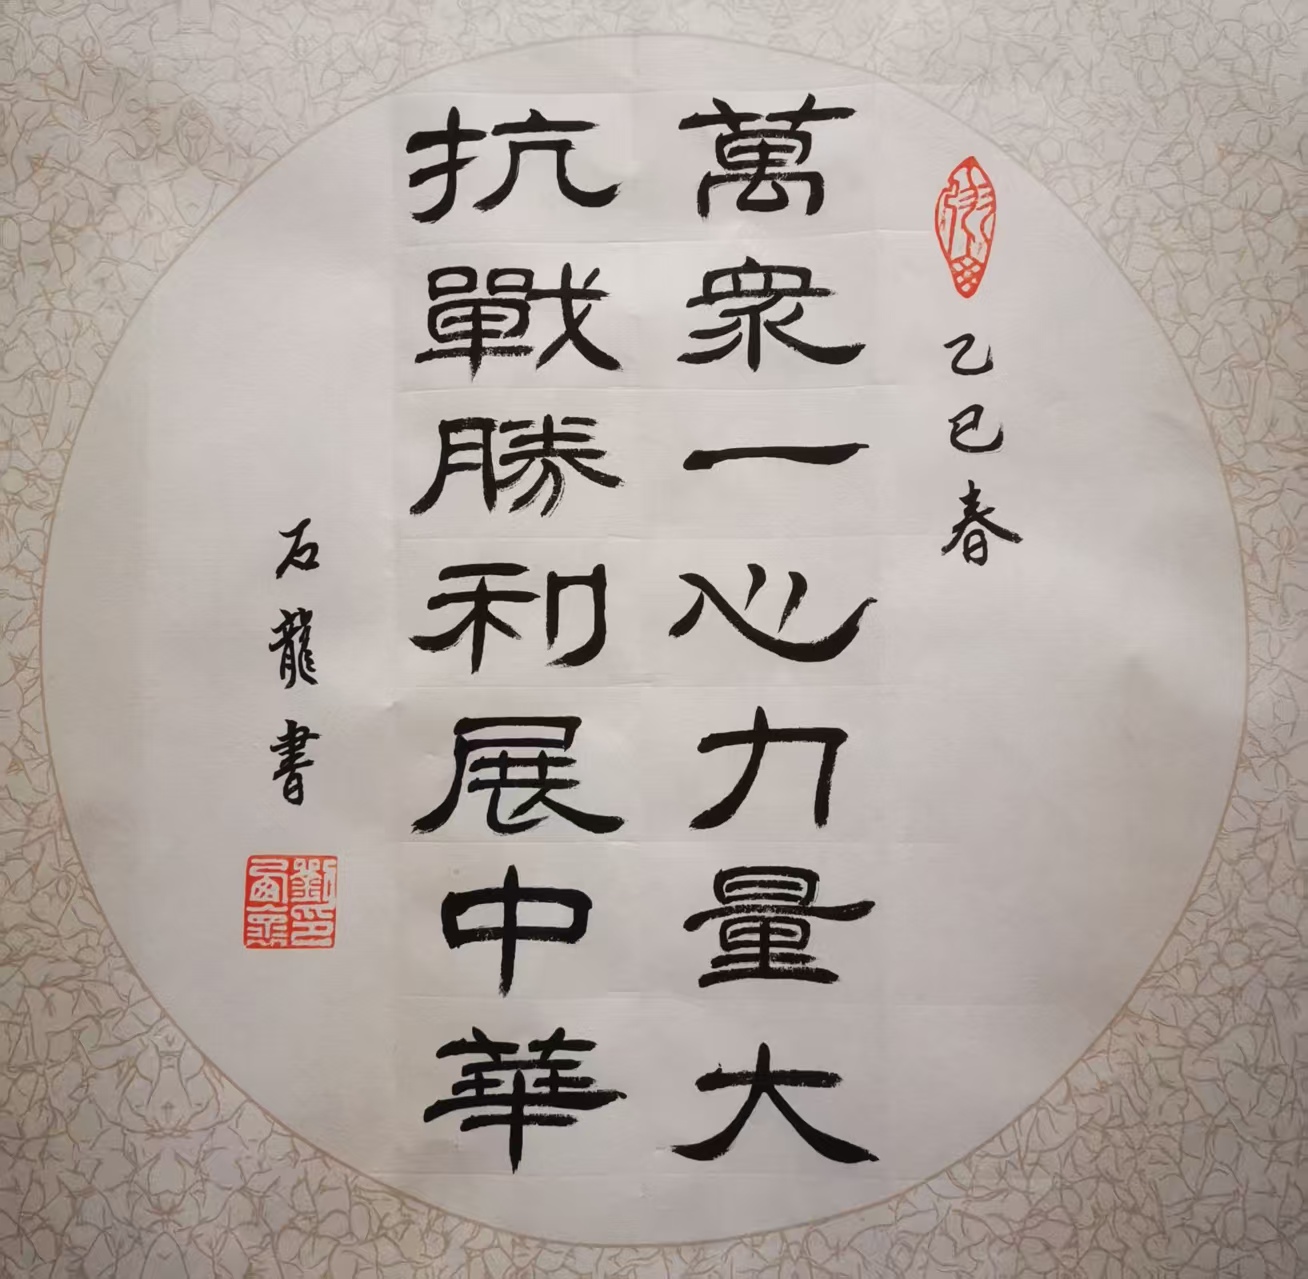 乙巳春
萬衆一心力量大
抗戰勝利展中華
石龍書